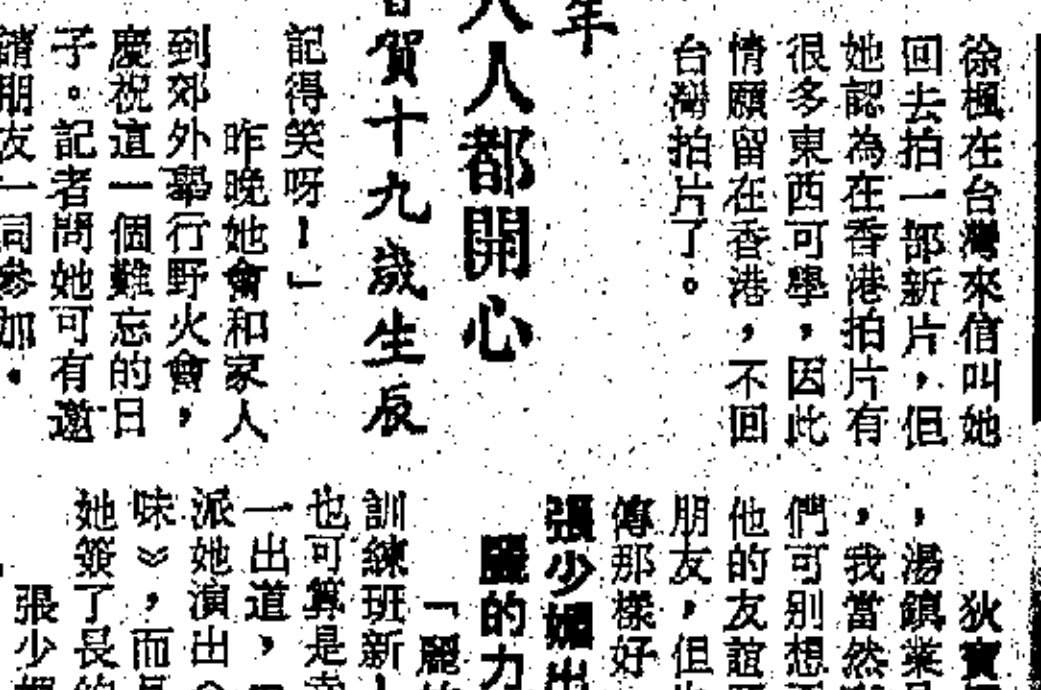 徐楓在台灣來信叫她
回去拍一部新片，但
她認為在香港拍片有
很多東西可學，因此
情願留在香港，不回
台灣拍片了。
年
人人都開心
賀十九歲生辰
記得笑呀！」
昨晚她會和家人
到郊外舉行野火會，
慶祝這一個難忘的日
子。記者問她可有邀
請朋友一同參加。
狄寶
，湯鎮業
，我當然
們可别想
他的友誼
朋友，但
傳那樣好
張少媚出
麗的力
「麗
訓練班新
也可算是
一出道，
派她演出
味》，而
她簽了長
張少